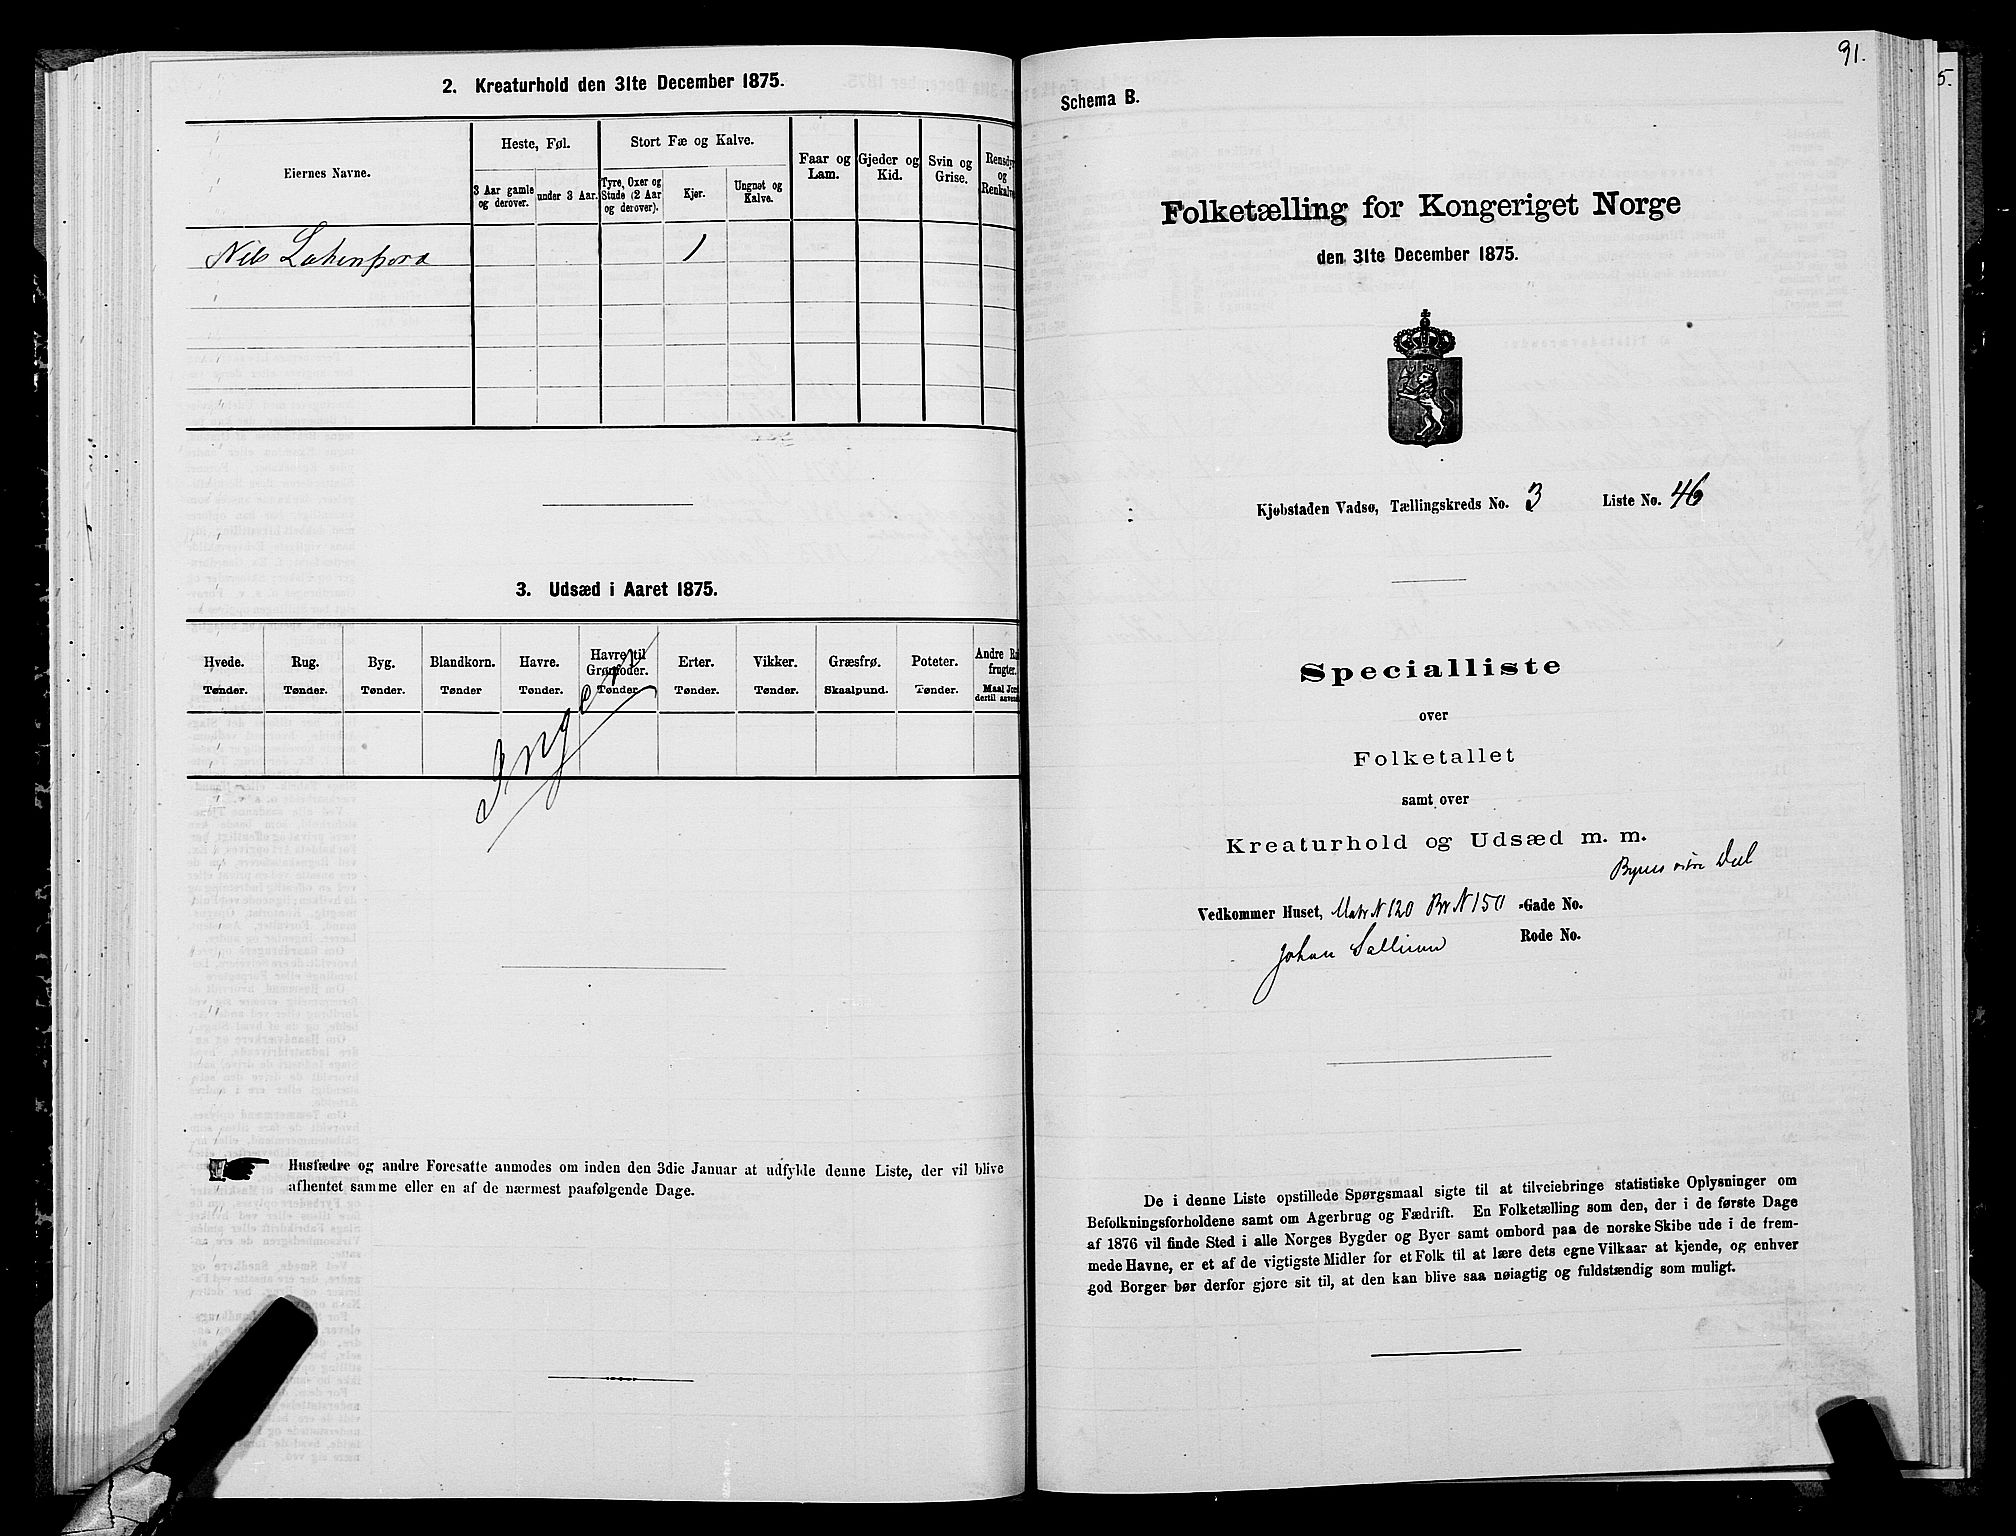 2. Kreaturhold den 31te December 1875.
Eiernes Navne.
Heste, Føl.
Stort Fæ og Kalve.
Faar og Lam.
Gjeder og Kid.
Svin og Grise.
Rensdyr og Renkalve
3 Aar gamle og derover.
under 3 Aar.
Tyre, Oxer og Stude (2 Aar og derover).
Kjør.
Ungnøt og Kalve.
Nils 1
3. Udsæd i Aaret 1875.
Hvede. Rug. Byg. Blandkorn. Havre. Havre til Grønfoder. Erter. Vikker. Græsfrø. Poteter. Andre Ro frugter.
Tønder. Tønder. Tønder. Tønder Tønder. Tønder. Tønder. Tønder. Skaalpund. Tønder. Maal Jor dertil anven
Ingen
Husfædre og andre Foresatte anmodes om inden den 3die Januar at udfylde denne Liste, der vil blive
afhentet samme eller en af de nærmest paafølgende Dage.
91.
5.
Schema B.
Folketælling for Kongeriget Norge
den 31te December 1875.
Kjøbstaden Vadsø, Tællingskreds No. 3 Liste No. 46
Specialliste
over
Folketallet
samt over
Kreaturhold og Udsæd m. m.
Byens Del
Vedkommer Huset, Matr N 120 Br N 150 -Gade No.
Johan Rode No.
De i denne Liste opstillede Spørgsmaal sigte til at tilveiebringe statistiske Oplysninger om
Befolkningsforholdene samt om Agerbrug og Fædrift. En Folketælling som den, der i de første Dage
af 1876 vil finde Sted i alle Norges Bygder og Byer samt ombord paa de norske Skibe ude i de frem-
mede Havne, er et af de vigtigste Midler for et Folk til at lære dets egne Vilkaar at kjende, og enhver
god Borger bør derfor gjøre sit til, at den kan blive saa nøiagtig og fuldstændig som muligt.